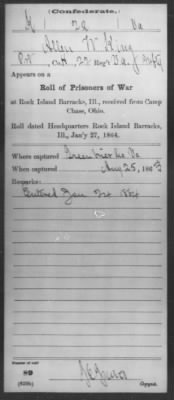 (Confederate.)
K 22 Va
Allen W King
Pvt, Co. K, 22 Reg't Va. Inf'try
Appears on a
Roll of Prisoners of War
at Rock Island Barracks, Ill., received from Camp
Chase, Ohio.
Roll dated Headquarters Rock Island Barracks,
Ill., Jan'y 27, 1864.
Where captured Greenbrier Co. Va
When captured Aug 25, 1863
Remarks:
Entered Jan 24 1864
Number of roll:
89
(639b)
Copyist.